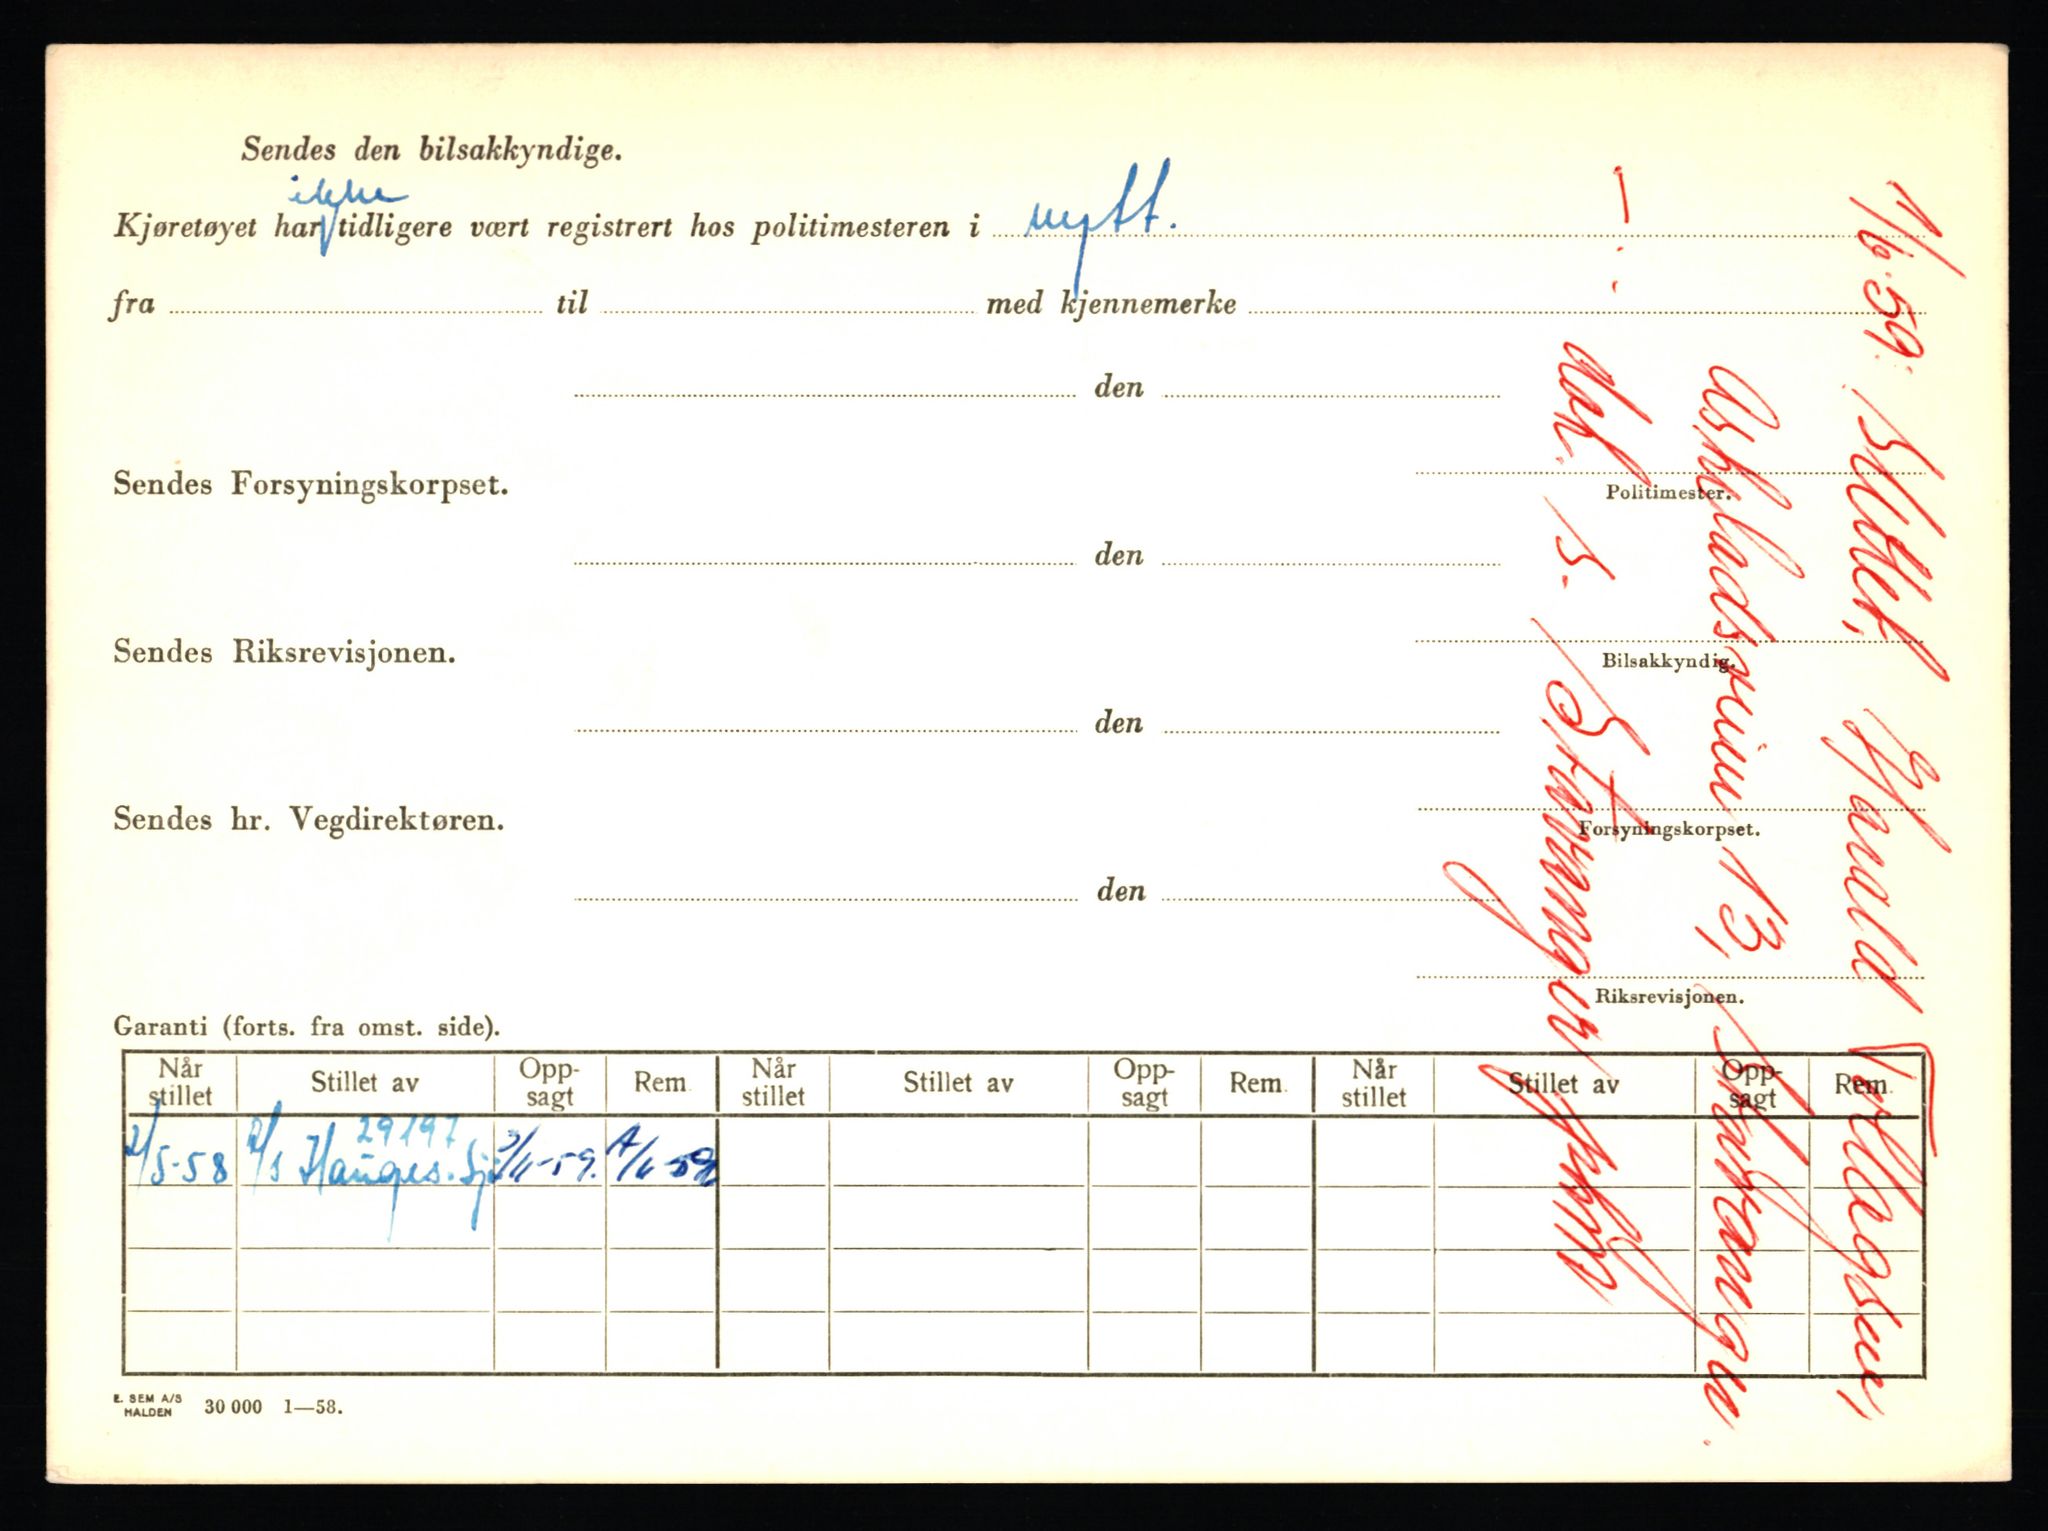 Sendes den bilsakkyndige.
ikke
Kjøretøyet har tidligere vært registrert hos politimesteren i nytt.
fra til med kjennemerke
den
Politimester.
Sendes Forsyningskorpset.
den
Bilsakkyndig.
Sendes Riksrevisjonen.
den
Forsyningskorpset.
Sendes hr. Vegdirektøren.
den
Riksrevisjonen.
Garanti (forts. fra omst. side).
Når stillet Stillet av Opp-sagt Rem. Når stillet Stillet av Opp-sagt Rem. Når stillet Stillet av Opp-sagt Rem.
29197
2/5-58 A/S Hauges. Sj /6-59. /6-59
E. SEM A/S HALDEN 30 000 1—58.
/6.59: Harald Tollagsen,
Asklundsveien 13, Stavanger.
dok. Stavanger